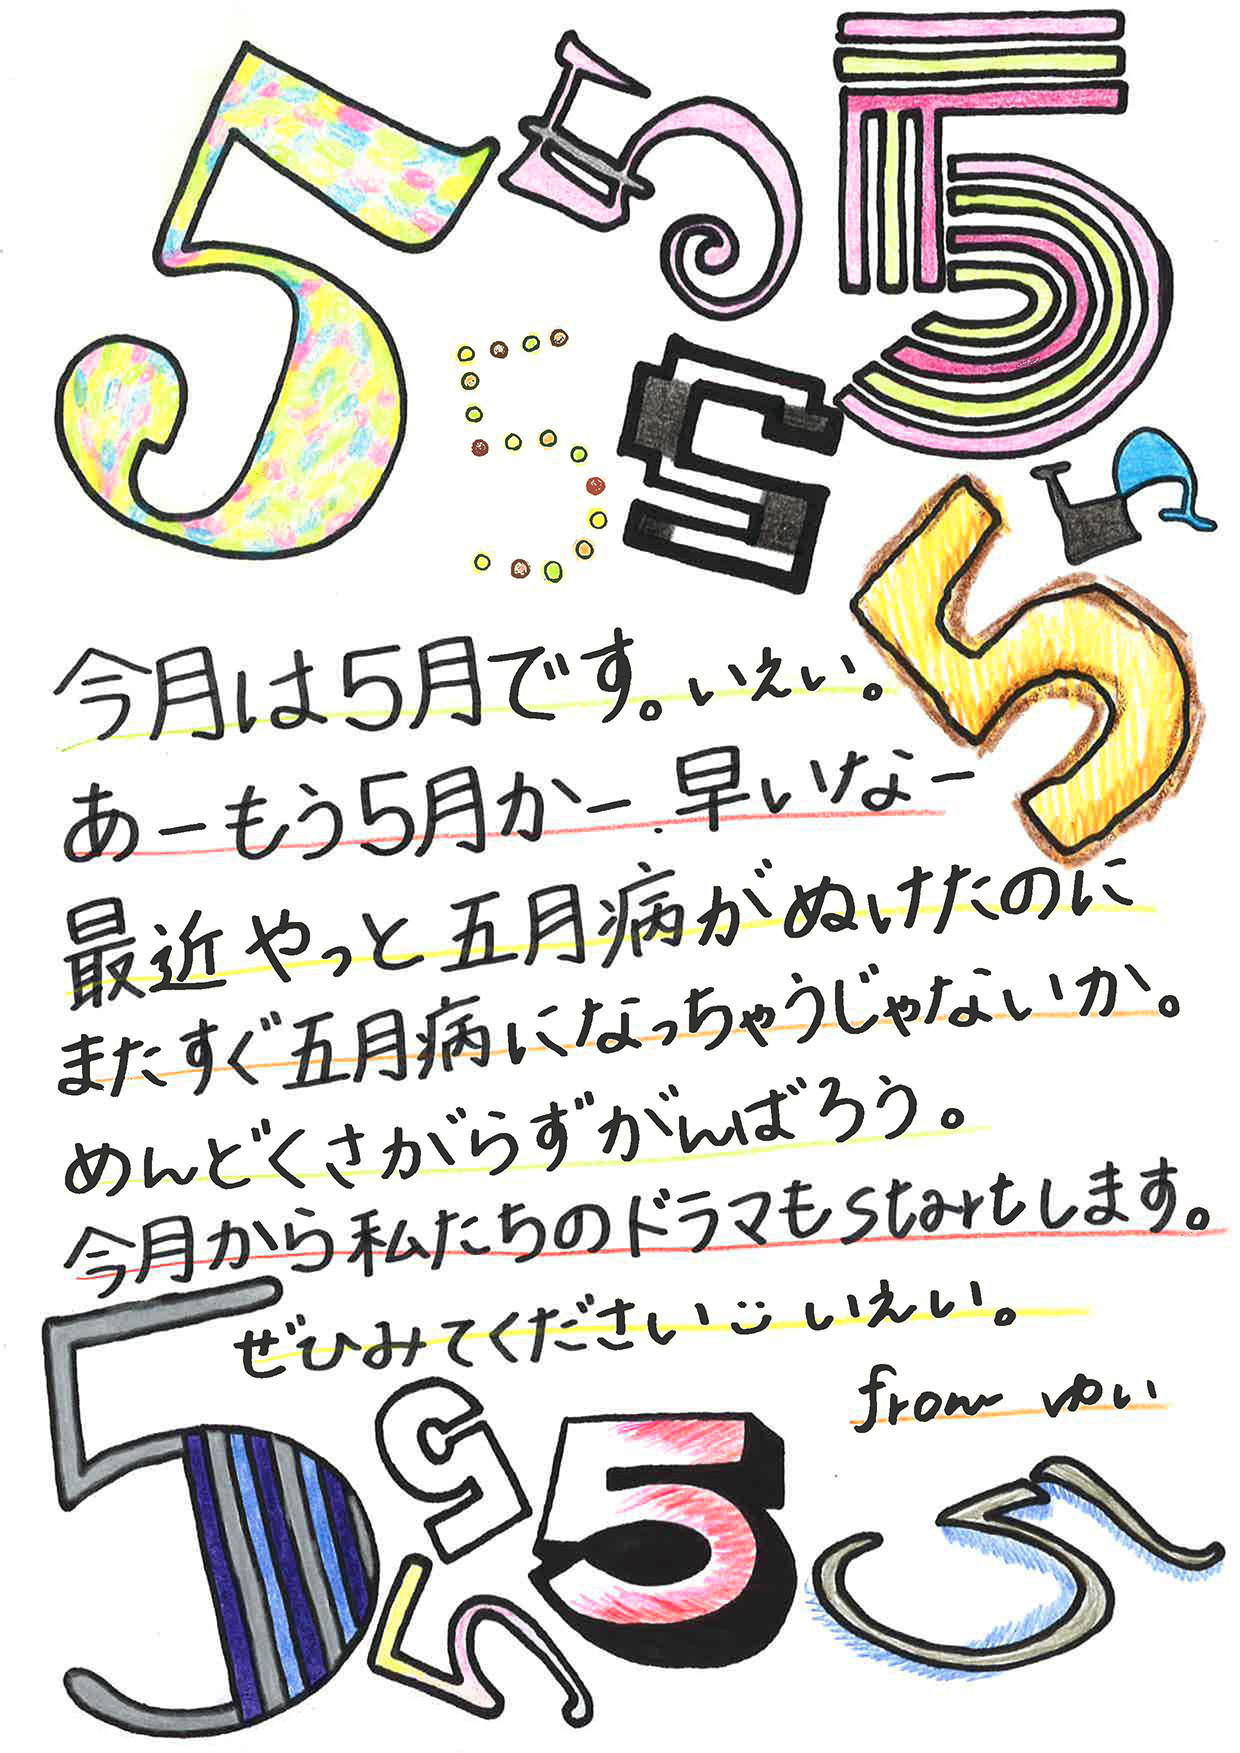 5 5 5
5 5 5
5
今月は5月です。いぇい。
あーもう5月かー早いなー
最近やっと五月病がぬけたのに
またすぐ五月病になっちゃうじゃないか。
めんどくさがらずがんばろう。
今月から私たちのドラマもstartします。
ぜひみてくださいいぇい。
from ゆい
5 5 5 5
5